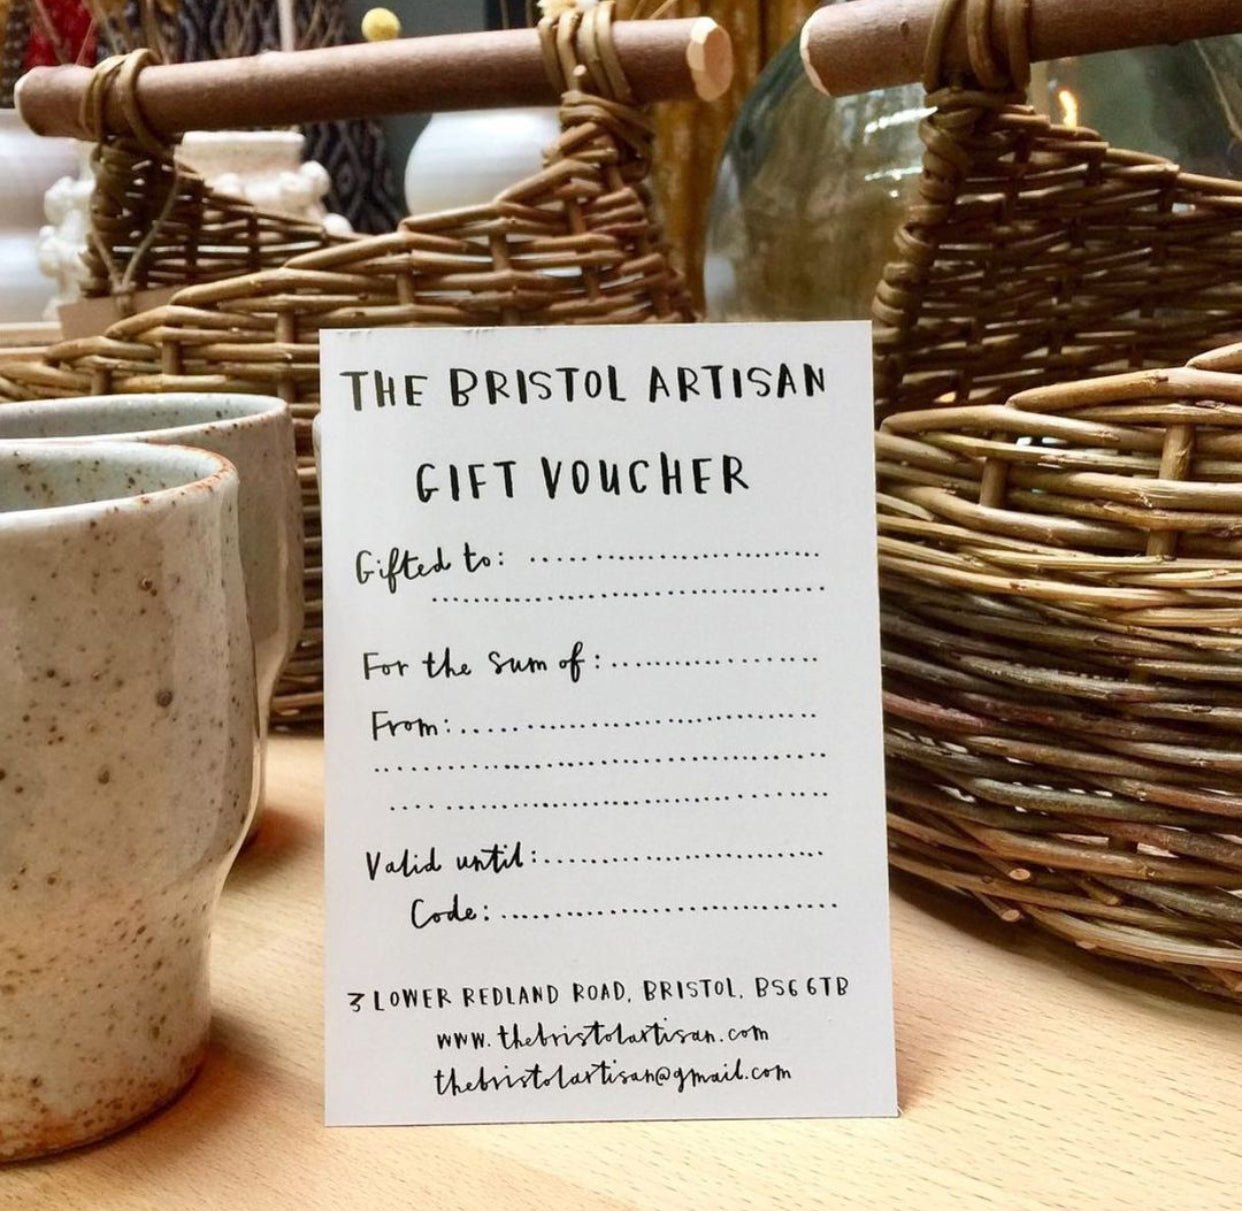 THE BRISTOL ARTISAN
GIFT VOUCHER
Gifted to: ..............................
..........................................
For the sum of: .......................
From: .......................................
................................................
................................................
Valid until: ..............................
Code: .....................................
3 LOWER REDLAND ROAD, BRISTOL, BS6 6TB
www.thebristolartisan.com
thebristolartisan@gmail.com